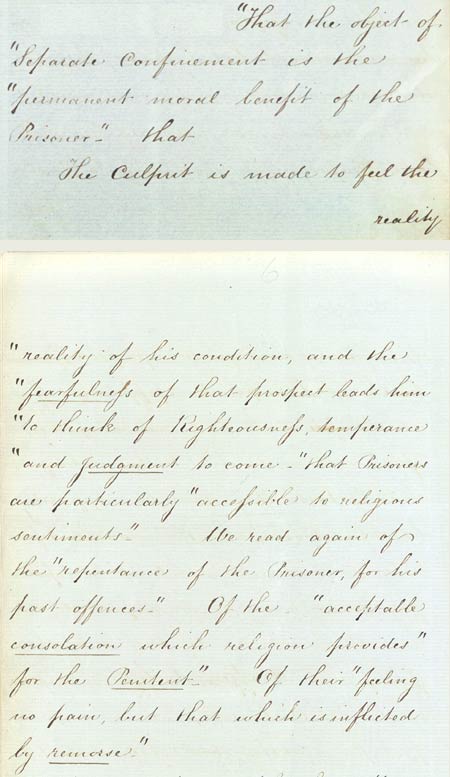 "That the object of
"Separate Confinement is the
"permanent moral benefit of the
Prisoner" that
The Culprit is made to feel the
reality
6
"reality of his condition, and the
"fearfulness of that prospect leads him
"to think of Righteousness, temperance
"and judgment to come - "that Prisoners
are particularly "accessible to religious
sentiments" We read again of
the "repentance of the Prisoner, for his
past offences-" Of the "acceptable
consolation which religion provides"
for the Penitent-" Of their "feeling
no pain, but that which is inflicted
by remorse-"